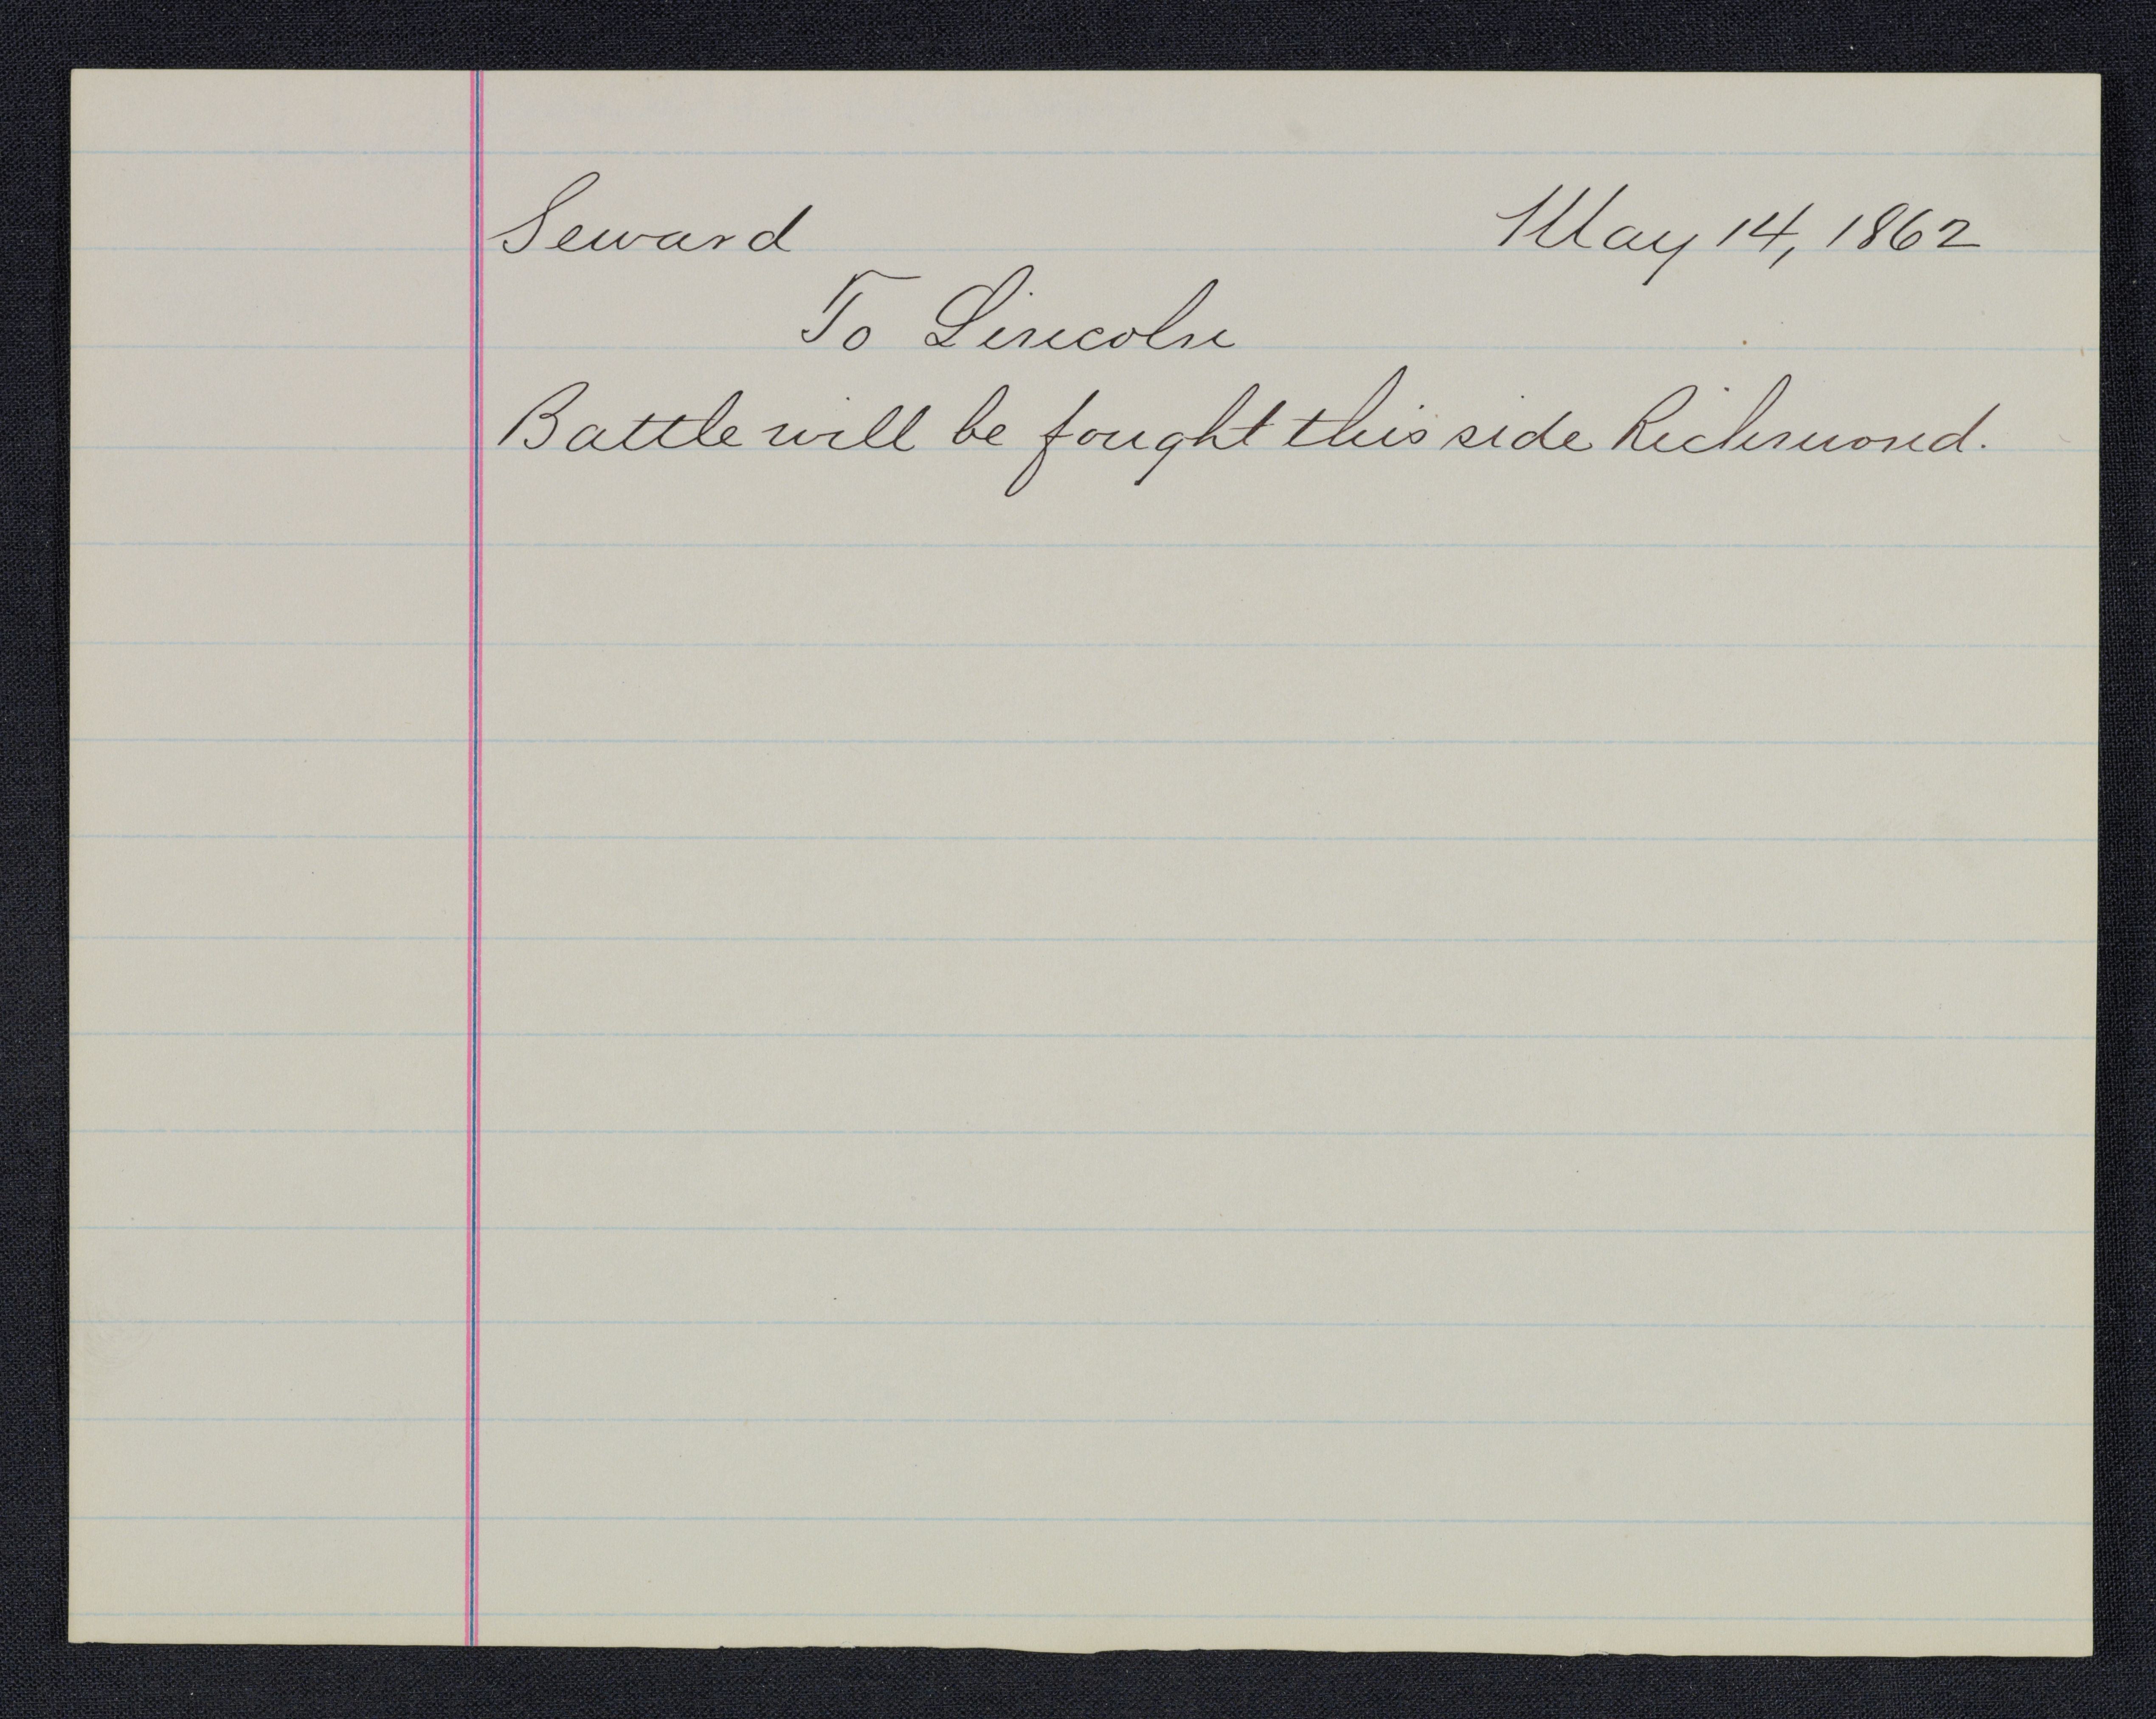 Seward May 14, 1862
To Lincoln
Battle will be fought this side Richmond.